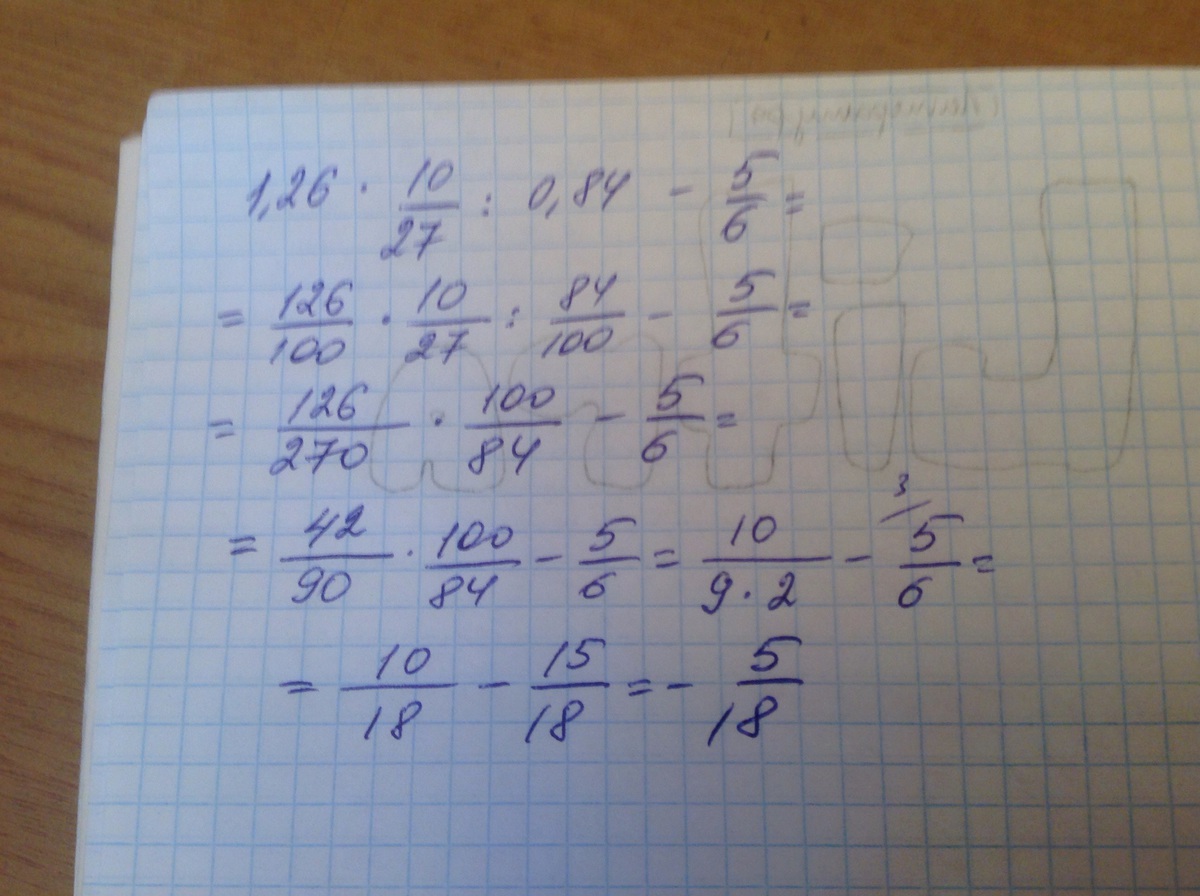 1,26 · 10/27 : 0,84 - 5/6 =
= 126/100 · 10/27 : 84/100 - 5/6 =
= 126/270 · 100/84 - 5/6 =
= 42/90 · 100/84 - 5/6 = 10/(9·2) - 3/ 5/6 =
= 10/18 - 15/18 = - 5/18